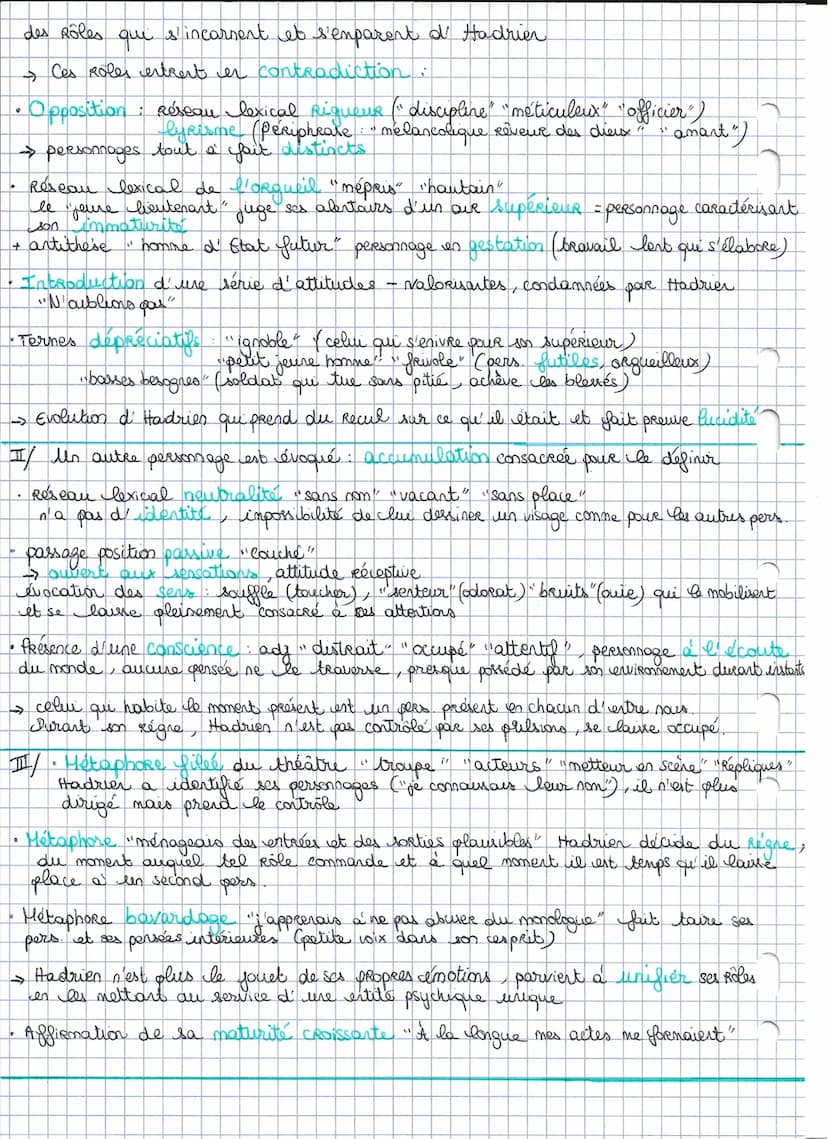 des Rôles qui s'incarnent et s'emparent d' Hadrien
→ Ces Rôles entrent en contradiction :
• Opposition : Réseau lexical Rigueur ("discipline" "méticuleux" "officier")
lyrisme (Périphrase : "mélancolique rêveur des dieux" "amant")
→ personnages tout à fait distincts
• Réseau lexical de l'orgueil "mépris" "hautain"
le "jeune lieutenant" juge ses alentours d'un air supérieur = personnage caractérisant
son immaturité
+ antithèse "homme d' Etat futur" personnage en gestation (travail lent qui s'élabore)
• Introduction d'une série d'attitudes - valorisantes, condamnées par Hadrien
"N'oublions pas"
• Termes dépréciatifs : "ignoble" (celui qui s'enivre pour son supérieur)
"petit jeune homme" "frivole" (pers. futiles, orgueilleux)
"basses besognes" (soldat qui tue sans pitié, achève les blessés)
→ Evolution d' Hadrien qui prend du Recul sur ce qu'il était et fait preuve lucidité
II/ Un autre personnage est évoqué : accumulation consacrée pour le définir
• Réseau lexical neutralité "sans nom" "vacant" "sans place"
n'a pas d' identité, impossibilité de lui dessiner un visage comme pour les autres pers.
• passage position passive "couché"
→ ouvert aux sensations, attitude réceptive
évocation des sens : souffle (toucher), "senteur" (odorat) "bruits" (ouïe) qui le mobilisent
et se laisse pleinement consacré à ces attentions
• Présence d'une conscience : adj "distrait" "occupé" "attentif", personnage à l'écoute
du monde, aucune pensée ne le traverse, presque possédé par son environnement durant instants
→ celui qui habite le moment présent est un pers. présent en chacun d'entre nous.
Durant son règne, Hadrien n'est pas contrôlé par ses pulsions, se laisse occupé.
III/ • Métaphore filée du théâtre "troupe" "acteurs" "metteur en scène" "Répliques"
Hadrien a identifié ses personnages ("je connaissais leur nom"), il n'est plus
dirigé mais prend le contrôle
• Métaphore "ménageais des entrées et des sorties plausibles" Hadrien décide du Règne,
du moment auquel tel Rôle commande et à quel moment il est temps qu'il laisse
place à un second pers.
• Métaphore bavardage "j'apprenais à ne pas abuser du monologue" fait taire ses
pers. et ses pensées intérieures (petite voix dans son esprit)
→ Hadrien n'est plus le jouet de ses propres émotions, parvient à unifier ses Rôles
en les mettant au service d' une entité psychique unique
• Affirmation de sa maturité croissante "À la longue mes actes me formaient"